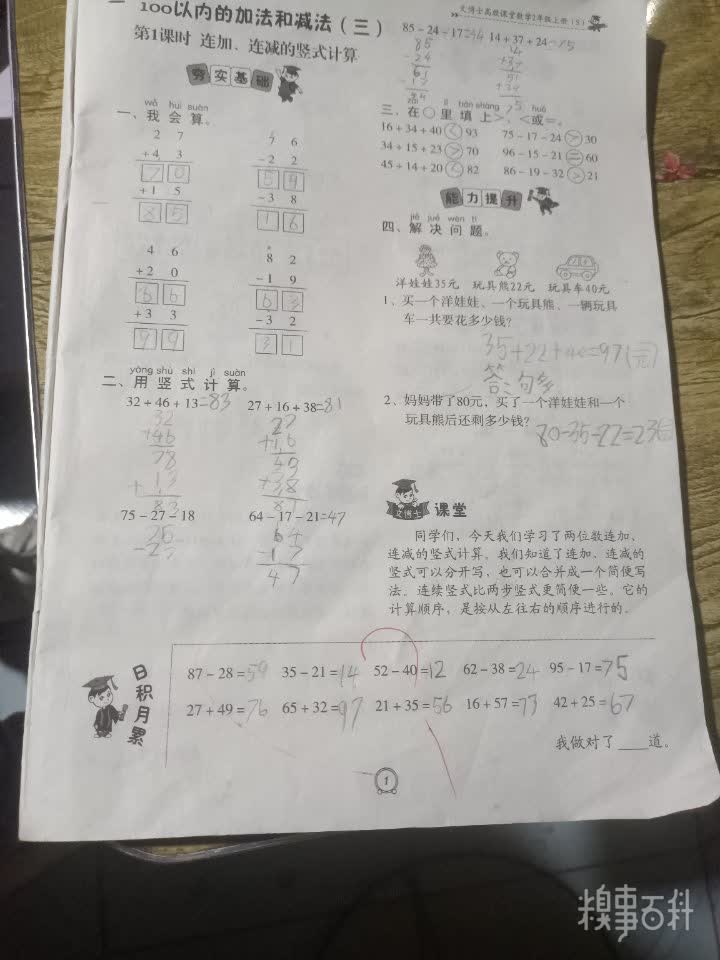 100以内的加法和减法（三）
第1课时 连加、连减的竖式计算
夯实基础
wǒ huì suàn
一、我会算。
2 7
+4 3
7 0
+1 5
8 5
7 6
－2 2
5 4
－3 8
1 6
4 6
+2 0
6 6
+3 3
9 9
8 2
－1 9
6 3
－3 2
3 1
yòng shù shì jì suàn
二、用竖式计算。
32＋46＋13=83
27＋16＋38=81
32
+46
78
+13
83
27
+16
49
+38
75－27－18
64－17－21=47
－27
64
－17
47
文博士高效课堂数学2年级上册（S）
85－24－17=44 14＋37＋24=75
85
－24
61
14
+37
51
+24
75
tián shàng huò
三、在○里填上>、<或=。
16＋34＋40<93 75－17－24>30
34＋15＋23>70 96－15－21=60
45＋14＋20<82 86－19－32>21
能力提升
jiě jué wèn tí
四、解决问题。
洋娃娃35元 玩具熊22元 玩具车40元
1、买一个洋娃娃、一个玩具熊、一辆玩具
车一共要花多少钱？
35+22+40=97(元)
答：句多
2、妈妈带了80元，买了一个洋娃娃和一个
玩具熊后还剩多少钱？
80－35－22=23
文博士 课堂
同学们，今天我们学习了两位数连加、
连减的竖式计算。我们知道了连加、连减的
竖式可以分开写，也可以合并成一个简便写
法。连续竖式比两步竖式更简便一些。它的
计算顺序，是按从左往右的顺序进行的。
日积月累
87－28=59 35－21=14 52－40=12 62－38=24 95－17=75
27＋49=76 65＋32=97 21＋35=56 16＋57=73 42＋25=67
我做对了____道。
1
糗事百科